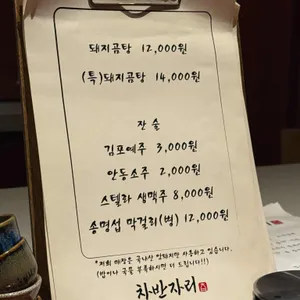 돼지곰탕 12,000원
(특)돼지곰탕 14,000원
잔 술
김포예주 3,000원
안동소주 2,000원
스텔라 생맥주 8,000원
송명섭 막걸리(병) 12,000원
*저희 매장은 국내산 암돼지만 사용하고 있습니다.
(밥이나 국물 부족하시면 더 드립니다!!!)
차반자리